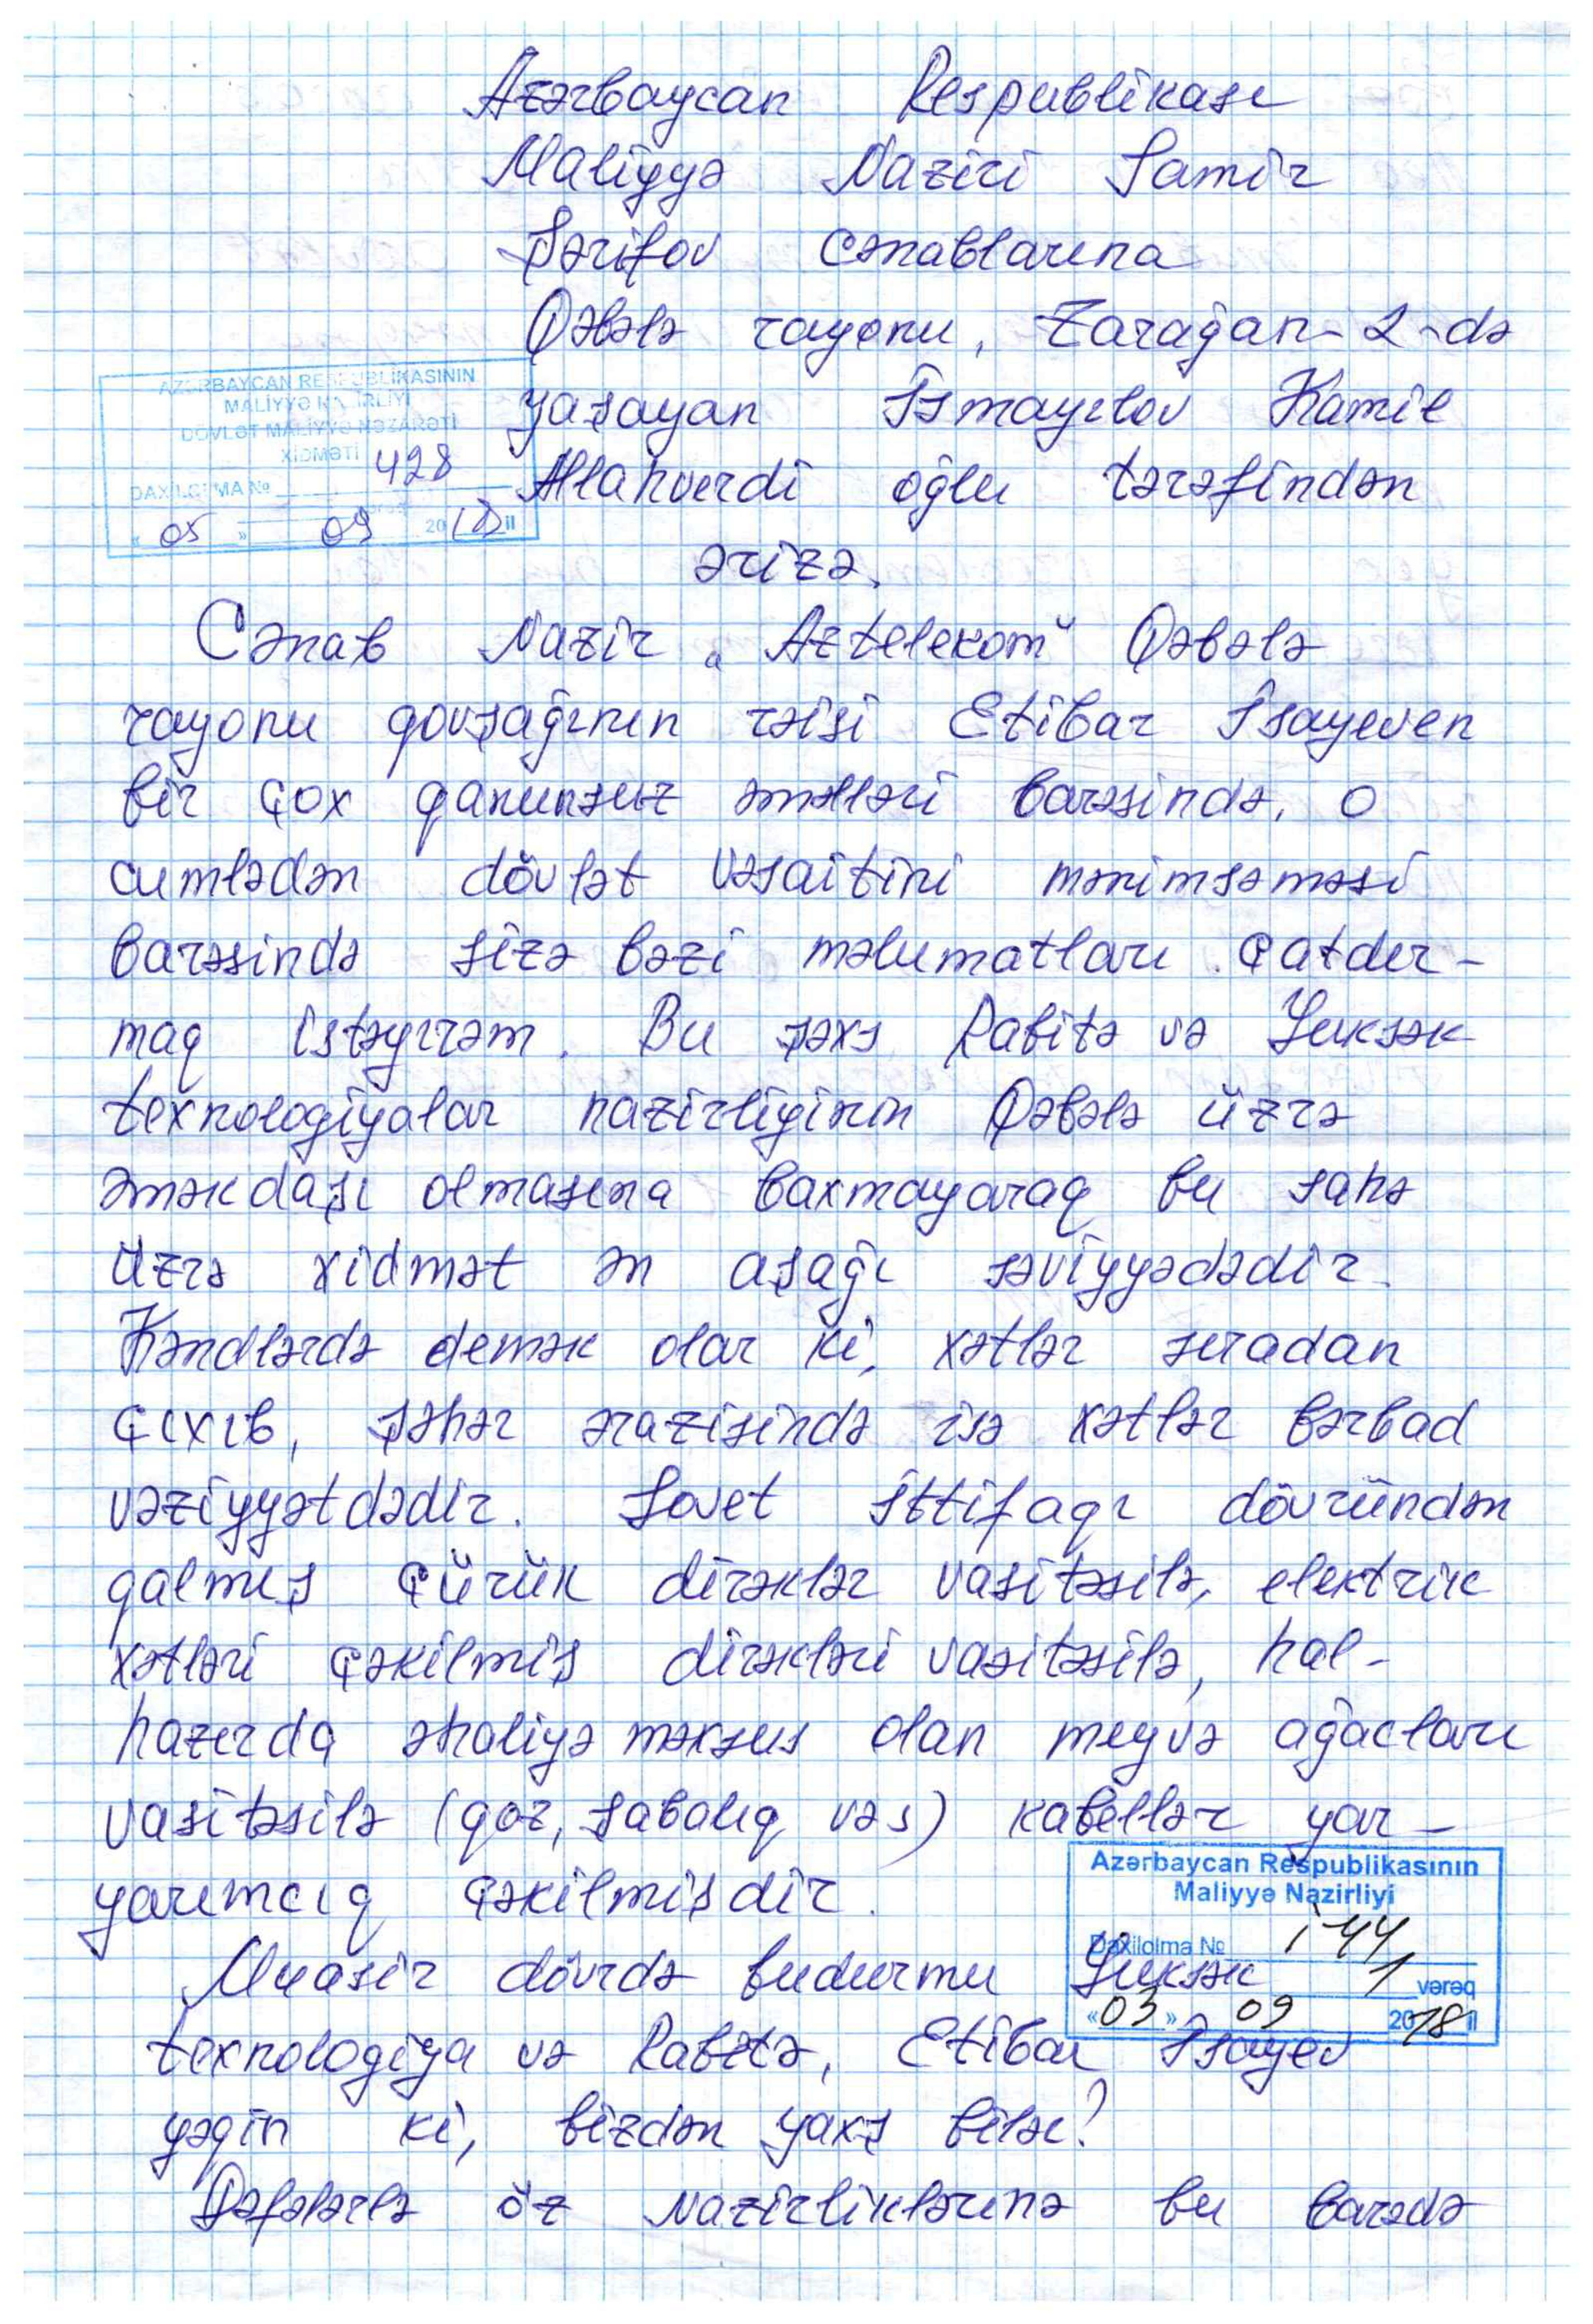 Azərbaycan Respublikası
Maliyyə Naziri Samir
Şərifov cənablarına
Qəbələ rayonu, Zarağan-2-də
yaşayan İsmayılov Kamil
Allahverdi oğlu tərəfindən
AZƏRBAYCAN RESPUBLİKASININ
MALİYYƏ NAZİRLİYİ
DÖVLƏT MALİYYƏ NƏZARƏTİ
XİDMƏTİ
DAXİLOLMA № 428
« 05 » 09 2018 il
ərizə.
Cənab Nazir „Aztelekom" Qəbələ
rayonu qovşağının rəisi Etibar İsayevin
bir çox qanunsuz əməlləri barəsində, o
cumlədən dövlət vəsaitini mənimsəməsi
barəsində sizə bəzi məlumatları çatdır-
maq istəyirəm. Bu şəxs Rabitə və Yuksək
texnologiyalar nazirliyinin Qəbələ üzrə
əməkdaşı olmasına baxmayaraq bu sahə
üzrə xidmət ən aşağı səviyyədədir.
Kəndlərdə demək olar ki, xətlər sıradan
çıxıb, şəhər ərazisində isə xətlər bərbad
vəziyyətdədir. Sovet İttifaqı dövründən
qalmış çürük dirəklər vasitəsilə, elektrik
xətləri çəkilmiş dirəkləri vasitəsilə, hal-
hazırda əhaliyə məxsus olan meyvə ağacları
vasitəsilə (qoz, şabalıq vəs) kabellər yar-
yarımcıq çəkilmişdir.
Azərbaycan Respublikasının
Maliyyə Nazirliyi
Daxilolma № i-44
1 vərəq
«03» 09 2018 il
Muasir dövrdə budurmu Yuksək
texnologiya və Rabitə, Etibar İsayev
yəqin ki, bizdən yaxş bilər?
Dəfələrlə öz Nazirliklərinə bu barədə